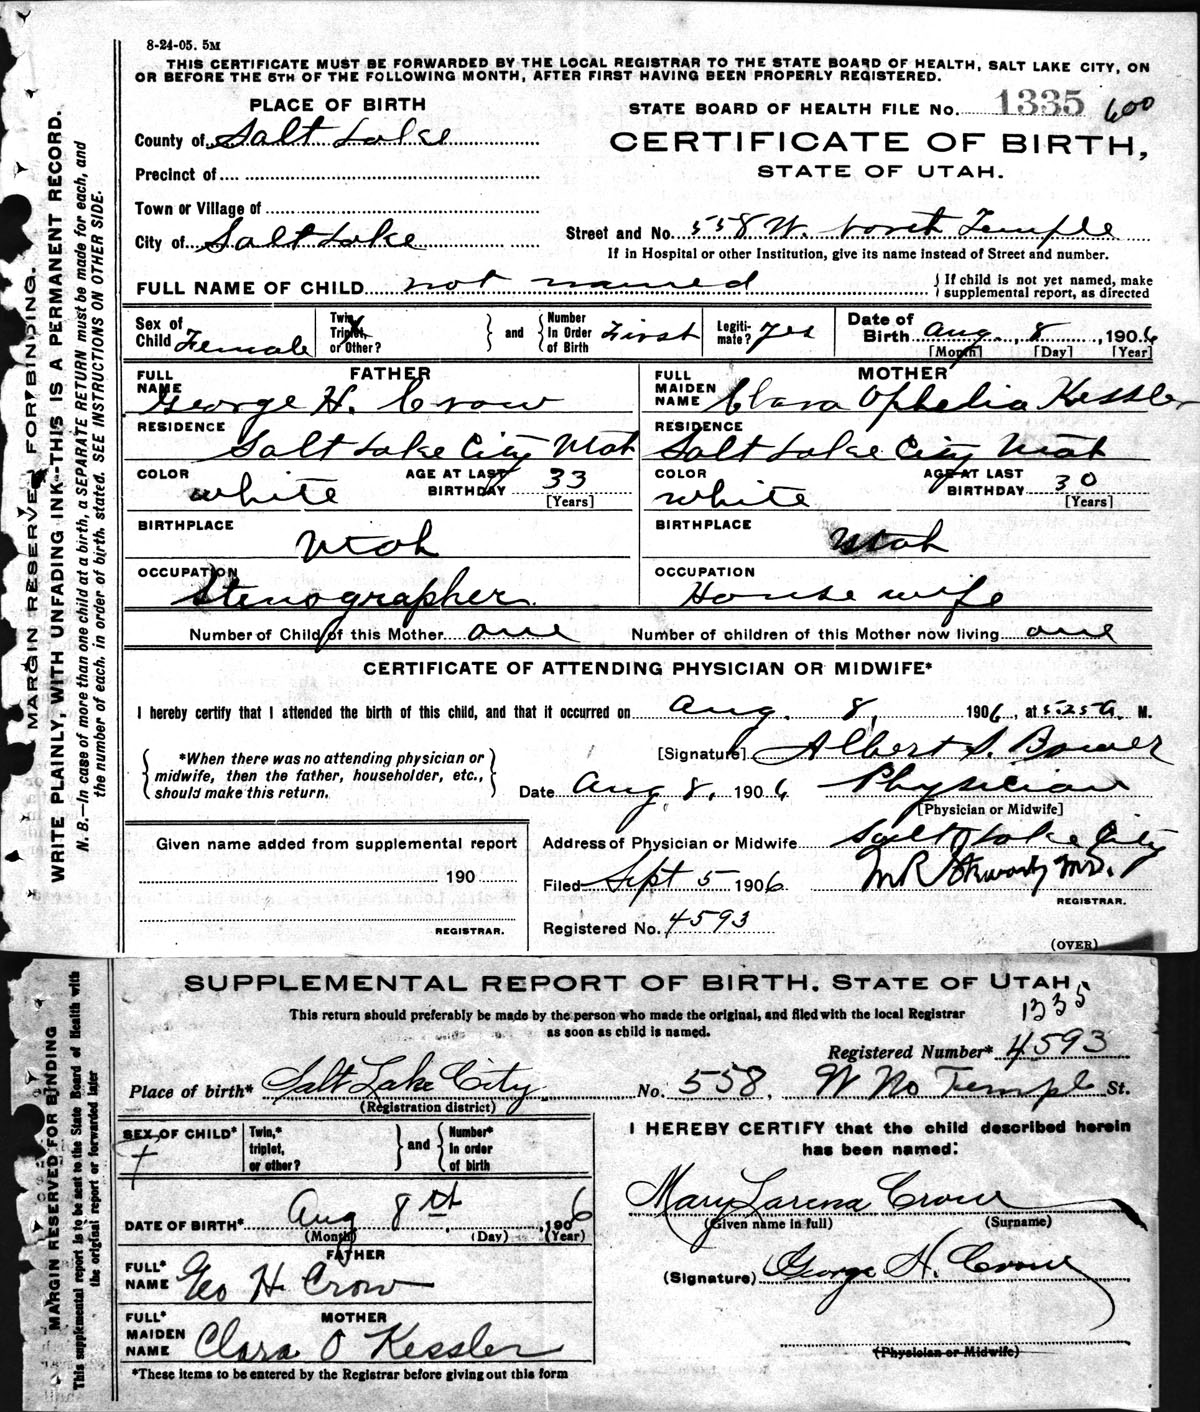 8-24-05. 5M
THIS CERTIFICATE MUST BE FORWARDED BY THE LOCAL REGISTRAR TO THE STATE BOARD OF HEALTH, SALT LAKE CITY, ON
OR BEFORE THE 5TH OF THE FOLLOWING MONTH, AFTER FIRST HAVING BEEN PROPERLY REGISTERED.
PLACE OF BIRTH
STATE BOARD OF HEALTH FILE No. 1335 600
County of Salt Lake
CERTIFICATE OF BIRTH,
STATE OF UTAH.
Precinct of
Town or Village of
City of Salt Lake
Street and No. 558 W. North Temple
If in Hospital or other Institution, give its name instead of Street and number.
FULL NAME OF CHILD not named
If child is not yet named, make
supplemental report, as directed
Sex of Child Female
Twin, Triplet, or Other?
and
Number In Order of Birth First
Legitimate? Yes
Date of Birth Aug. 8, 1906
[Month] [Day] [Year]
FATHER
FULL NAME George H. Crow
RESIDENCE
Salt Lake City Utah
COLOR white
AGE AT LAST BIRTHDAY 33
[Years]
BIRTHPLACE
Utah
OCCUPATION
Stenographer
MOTHER
FULL MAIDEN NAME Clara Ophelia Kessler
RESIDENCE
Salt Lake City Utah
COLOR white
AGE AT LAST BIRTHDAY 30
[Years]
BIRTHPLACE
Utah
OCCUPATION
House wife
Number of Child of this Mother one Number of children of this Mother now living one
CERTIFICATE OF ATTENDING PHYSICIAN OR MIDWIFE*
I hereby certify that I attended the birth of this child, and that it occurred on Aug. 8, 1906, at 5.25 a. M.
*When there was no attending physician or
midwife, then the father, householder, etc.,
should make this return.
[Signature] Albert S. Bower
Date Aug 8, 1906 Physician
[Physician or Midwife]
Given name added from supplemental report
190
REGISTRAR.
Address of Physician or Midwife Salt Lake City
Filed Sept 5 1906 M.D.
REGISTRAR.
Registered No. 4593
(OVER)
MARGIN RESERVED FOR BINDING.
WRITE PLAINLY, WITH UNFADING INK--THIS IS A PERMANENT RECORD.
N. B.—In case of more than one child at a birth, a SEPARATE RETURN must be made for each, and
the number of each, in order of birth, stated. SEE INSTRUCTIONS ON OTHER SIDE.
SUPPLEMENTAL REPORT OF BIRTH, STATE OF UTAH,
1335
This return should preferably be made by the person who made the original, and filed with the local Registrar
as soon as child is named.
Registered Number* 4593
Place of birth* Salt Lake City No. 558, W No Temple St.
(Registration district)
SEX OF CHILD* f
Twin,* triplet, or other?
and
Number* In order of birth
DATE OF BIRTH* Aug 8th, 1906
(Month) (Day) (Year)
FATHER
FULL* NAME Geo H Crow
MOTHER
FULL* MAIDEN NAME Clara O Kessler
*These items to be entered by the Registrar before giving out this form
I HEREBY CERTIFY that the child described herein
has been named:
Mary Larena Crow
(Given name in full) (Surname)
(Signature) George H. Crow
(Physician or Midwife)
MARGIN RESERVED FOR BINDING
This supplemental report is to be sent to the State Board of Health with
the original report or forwarded later